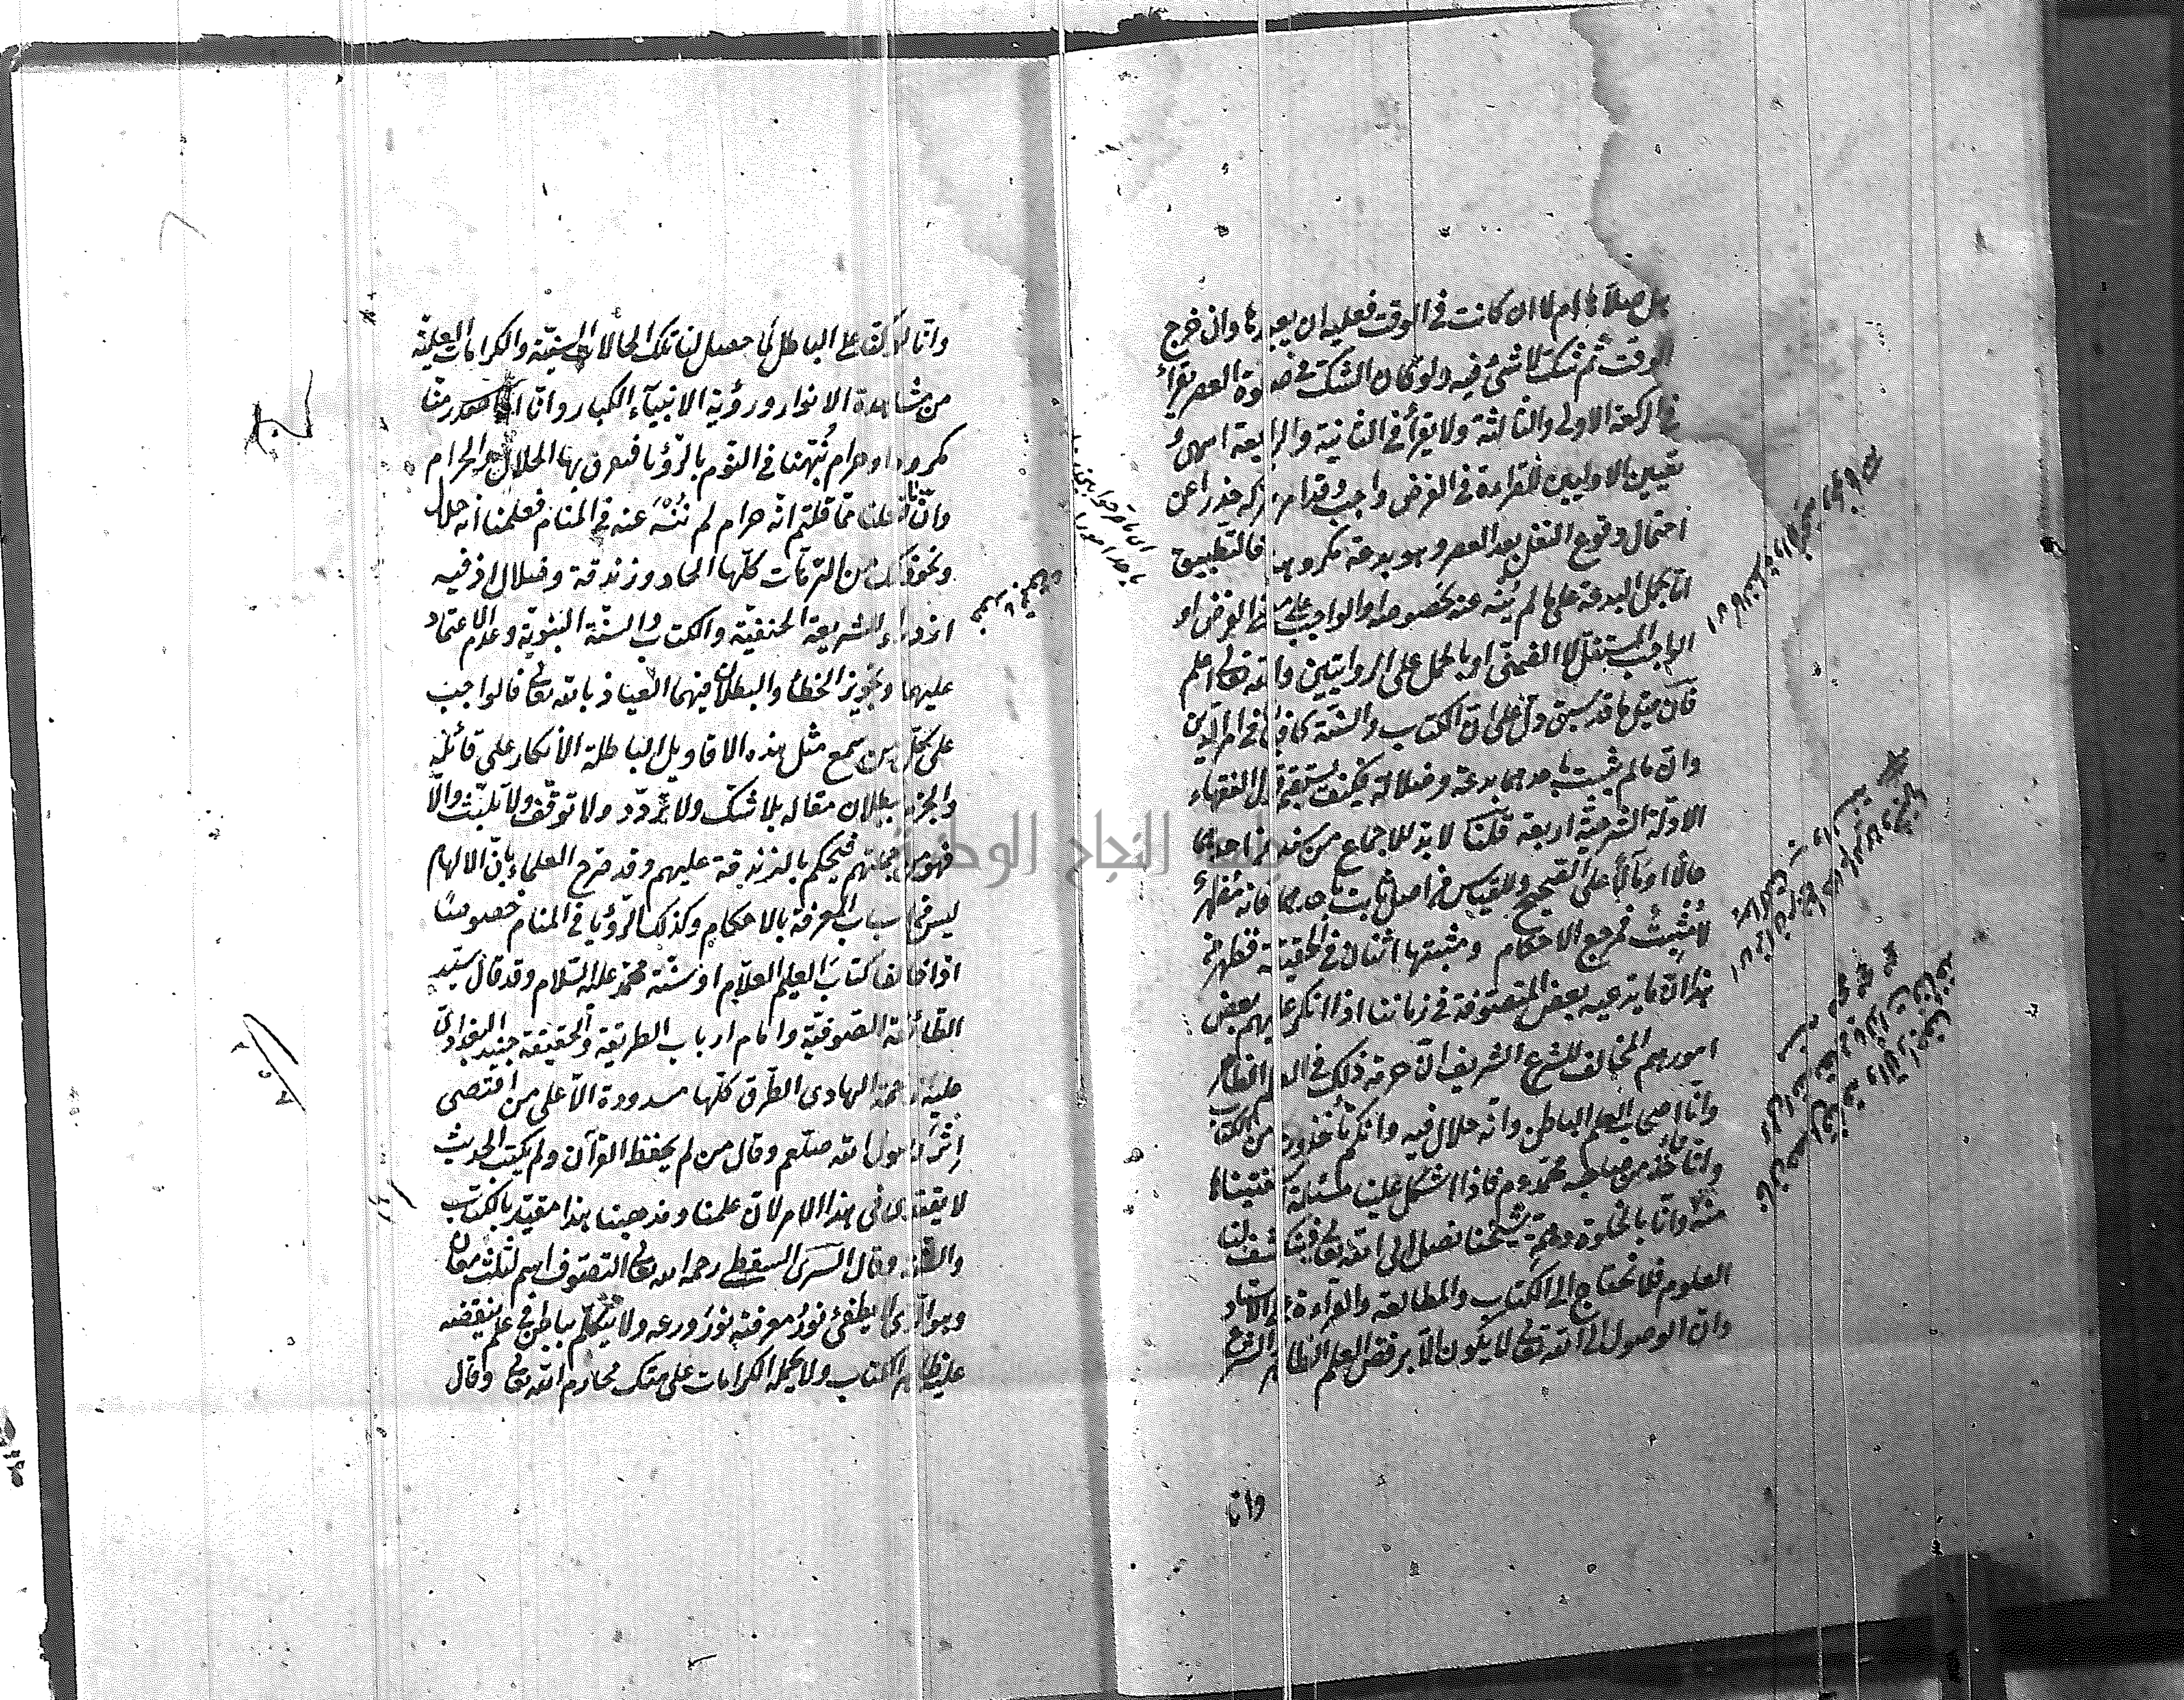 هل صلاها ام لا ان كانت فى الوقت فعليه ان يعيدها وان خرج
الوقت ثم شك لا شئ فيه ولو كان الشك فى صلوة العصر يقرأ
فى الركعة الاولى والثالثة ولا يقرأ فى الثانية والرابعة انتهى
تعيين الاوليين للقراءة فى الفرض واجب وقد امر بتركه حذرا عن
احتمال وقوع النفل بعد العصر وهو بدعة مكروهة فالتطبيق
اما بحمل البدعة على ما لم ينه عنه بخصوصه او الواجب على معنى الفرض او
الواجب المستقل لا الضمنى او بالحمل على الروايتين والله تعالى اعلم
فان قيل ما قد سبق دل على ان الكتاب والسنة كافيان فى امر الدين
وان ما لم يثبت باحدهما بدعة وضلالة فكيف يستقيم قول الفقهاء
الادلة الشرعية اربعة قلنا لا بد للاجماع من سند من احدهما
حالا او مآلا على الصحيح وللقياس من اصل ثابت باحدهما فانه مظهر
لا مثبت فمرجع الاحكام ومثبتها اثنان فى الحقيقة فظهر من
هذا ان ما يدعيه بعض المتصوفة فى زماننا اذا انكر عليهم بعض
امورهم المخالف للشرع الشريف ان حرمة ذلك فى العلم الظاهر
وانا اصحاب العلم الباطن وانه حلال فيه وانكم تأخذون من الكتاب
وانا نأخذ من صاحبه محمد عم فاذا اشكل علينا مسئلة استفتيناه
منه وانا بالخلوة وهمة شيخنا نصل الى الله تعالى فينكشف لنا
العلوم فلا نحتاج الى الكتاب والمطالعة والقراءة على الاستاد
وان الوصول الى الله تعالى لا يكون الا برفض العلم الظاهر والشرع
وانا
وانا لو كنا على الباطل لما حصل لنا تلك الحالات السنية والكرامات العلية
من مشاهدة الانوار ورؤية الانبياء الكبار وانا اذا صدر منا
مكروه او حرام نبهنا فى النوم بالرؤيا فنعرف بها الحلال والحرام
وان ما فعلنا مما قلتم انه حرام لم ننه عنه فى المنام فعلمنا انه حلال
ونحو ذلك من الترهات كلها الحاد وزندقة وضلال اذ فيه
ازدراء للشريعة الحنفية والكتاب والسنة النبوية وعدم الاعتماد
عليهما وتجويز الخطأ والبطلان فيهما العياذ بالله تعالى فالواجب
على كل من سمع مثل هذه الاقاويل الباطلة الانكار على قائله
والجزم ببطلان مقاله بلا شك ولا تردد ولا توقف ولا تلبث والا
فهو من جملتهم فيحكم بالزندقة عليهم وقد صرح العلماء بان الالهام
ليس من اسباب المعرفة بالاحكام وكذلك الرؤيا فى المنام خصوصا
اذا خالف كتاب العليم العلام او سنة محمد عليه السلام وقد قال سيد
الطائفة الصوفية وامام ارباب الطريقة والحقيقة جنيد البغدادى
عليه رحمة الهادى الطرق كلها مسدودة الا على من اقتفى
اثر رسول الله صلعم وقال من لم يحفظ القرآن ولم يكتب الحديث
لا يقتدى فى هذا الامر لان علمنا ومذهبنا هذا مقيد بالكتاب
والسنة وقال السرى السقطى رحمه الله تعالى التصوف اسم لثلث معان
وهو الذى لا يطفئ نور معرفته نور ورعه ولا يتكلم بباطن فى علم ينقضه
عليه ظاهر الكتاب ولا يحمله الكرامات على هتك محارم الله تعالى وقال
جامعة النجاح الوطنية